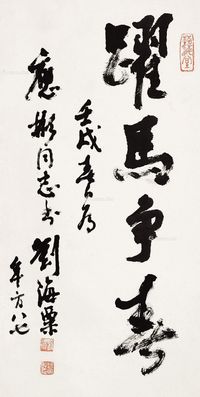 躍馬争春
壬戌春日为
應彬同志书
劉海粟
年方八七